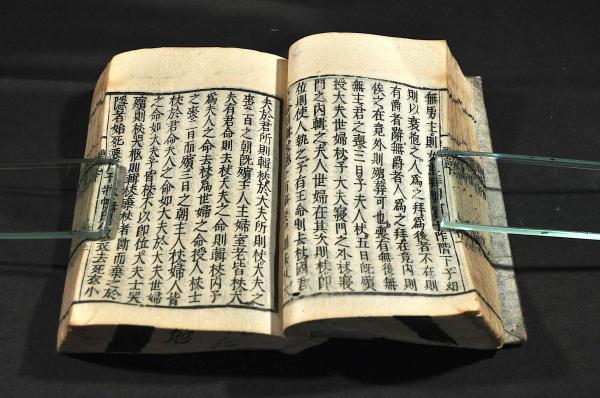 無男主則女阼階下子幼
則以衰抱之人為之拜為後者不在則
有爵者辭無爵者人為之拜在竟內則
俟之在竟外則殯葬可也喪有無後無
無主君之喪三日子夫人杖五日既殯
授大夫世婦杖子大夫寢門之外杖寢
門之內輯之夫人世婦在其次則杖即
位則使人執之子有王命則去杖國君
夫於君所則輯杖於大夫所則杖大夫之
喪三日之朝既殯主人主婦室老皆杖大
夫有君命則去杖大夫之命則輯杖內子
為夫人之命去杖為世婦之命授人杖士
之喪二日而殯三日之朝主人杖婦人皆
杖於君命夫人之命如大夫於大夫世婦
之命如大夫子皆杖不以即位大夫士哭
殯則杖哭柩則輯杖棄杖者斷而棄之於
隱者始死遷去死衣小